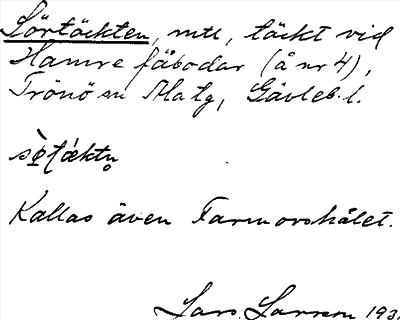 Sörtäckten, mte, täckt vid
Hamre fäbodar (å nr 4),
Trönö sn Alatg, Gävleb. l.
Kallas även Farmorshålet.
Lars Larsson 193